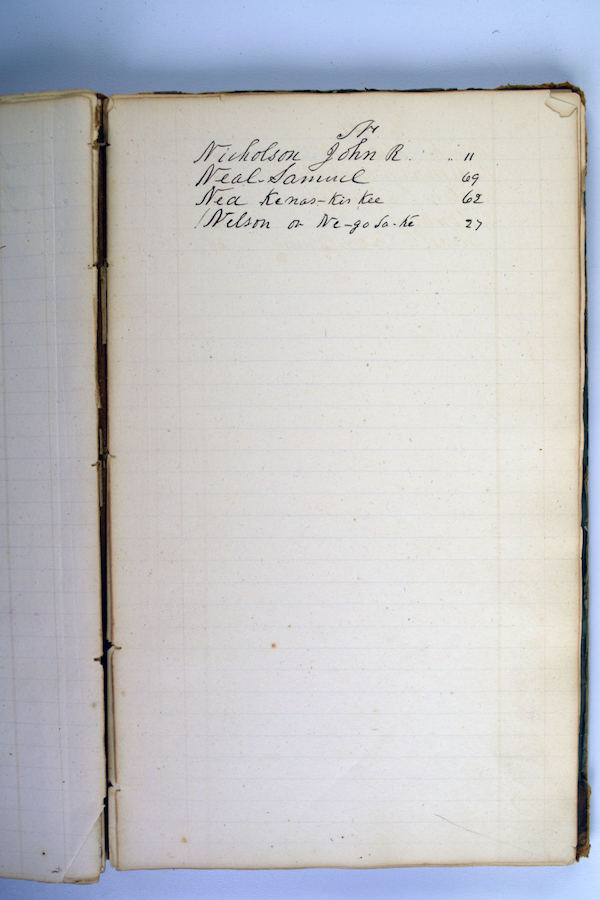 N
Nicholson John R. .. 11
Neal Samuel 69
Ned Kenas-Kis Kee 62
Nelson or Ne-go da-Ke 27